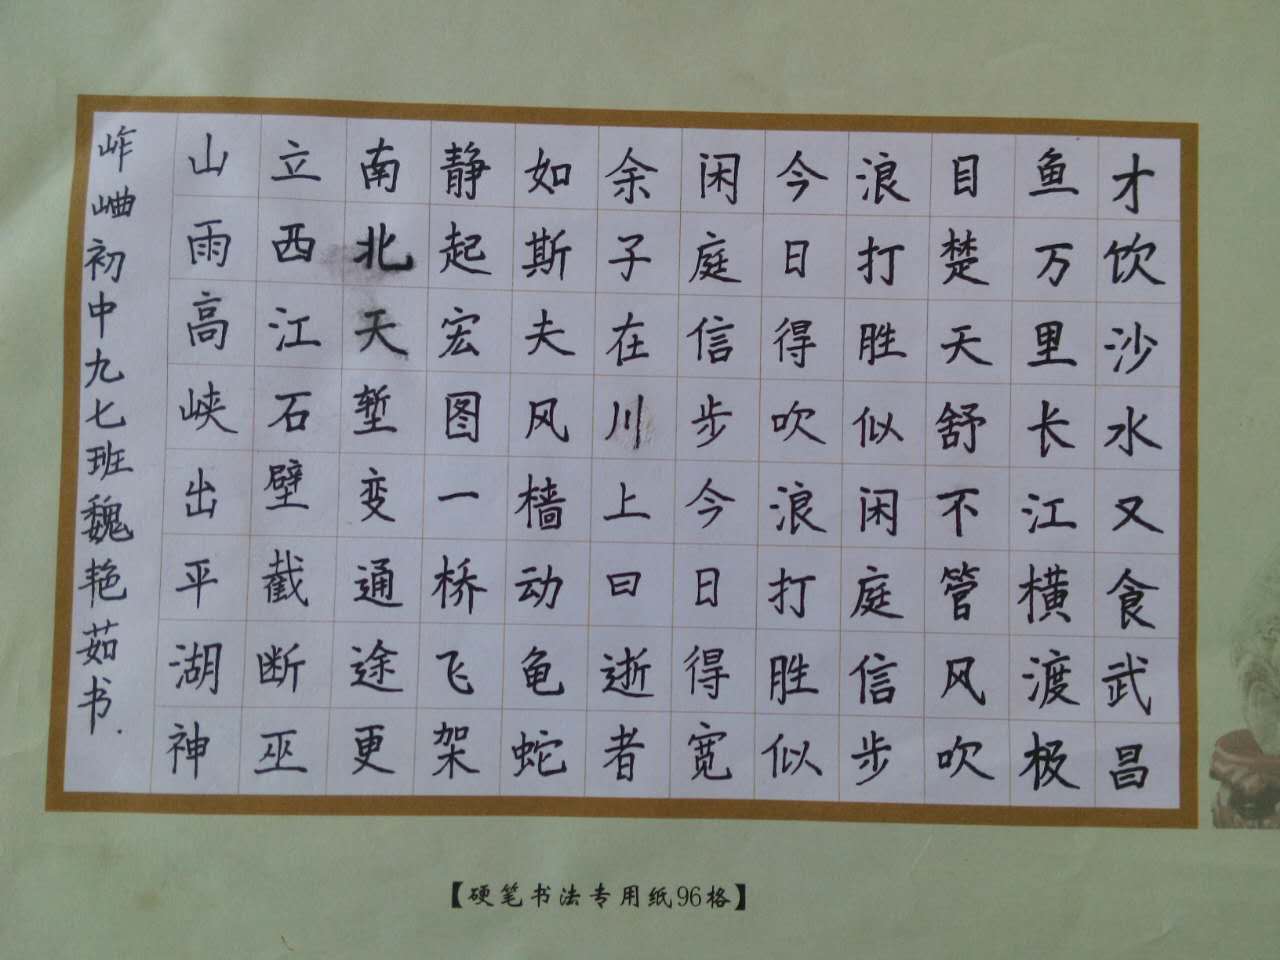 才饮沙水又食武昌
鱼万里长江横渡极
目楚天舒不管风吹
浪打胜似闲庭信步
今日得吹浪打胜似
闲庭信步今日得宽
余子在川上曰逝者
如斯夫风樯动龟蛇
静起宏图一桥飞架
南北天堑变通途更
立西江石壁截断巫
山雨高峡出平湖神
岞初中九七班魏艳茹书.
【硬笔书法专用纸96格】